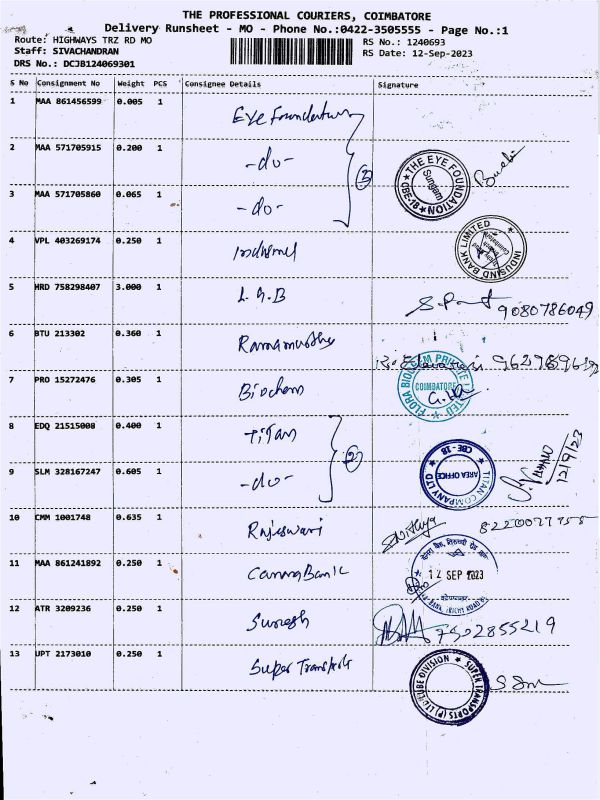 THE PROFESSIONAL COURIERS, COIMBATORE
Delivery Runsheet - MO - Phone No.:0422-3505555 - Page No.:1
Route: HIGHWAYS TRZ RD MO
RS No.: 1240693
Staff: SIVACHANDRAN
RS Date: 12-Sep-2023
DRS No.: DCJB124069301
S No Consignment No Weight PCS Consignee Details Signature
1 MAA 861456599 0.005 1 Eye Foundation
2 MAA 571705915 0.200 1 -do- 3 THE EYE FOUNDATION Sungam CBE-18
3 MAA 571705860 0.065 1 -do-
4 VPL 403269174 0.250 1 Indusind INDUSIND BANK LIMITED
5 HRD 758298407 3.000 1 L.G.B 9080786049
6 BTU 213302 0.360 1 Ramamurthy
7 PRO 15272476 0.305 1 Biochem COIMBATORE
8 EDQ 21515008 0.400 1 Titan
2 TITAN COMPANY LTD AREA OFFICE CBE-18 12/9/23
9 SLM 328167247 0.605 1 -do-
10 CMM 1001748 0.635 1 Rajeswari Nithya
11 MAA 861241892 0.250 1 Canara Bank 12 SEP 2023
12 ATR 3209236 0.250 1 Suresh 7502855219
13 UPT 2173010 0.250 1 Super Transports SUPER TRANSPORTS (P) LTD CUBE DIVISION